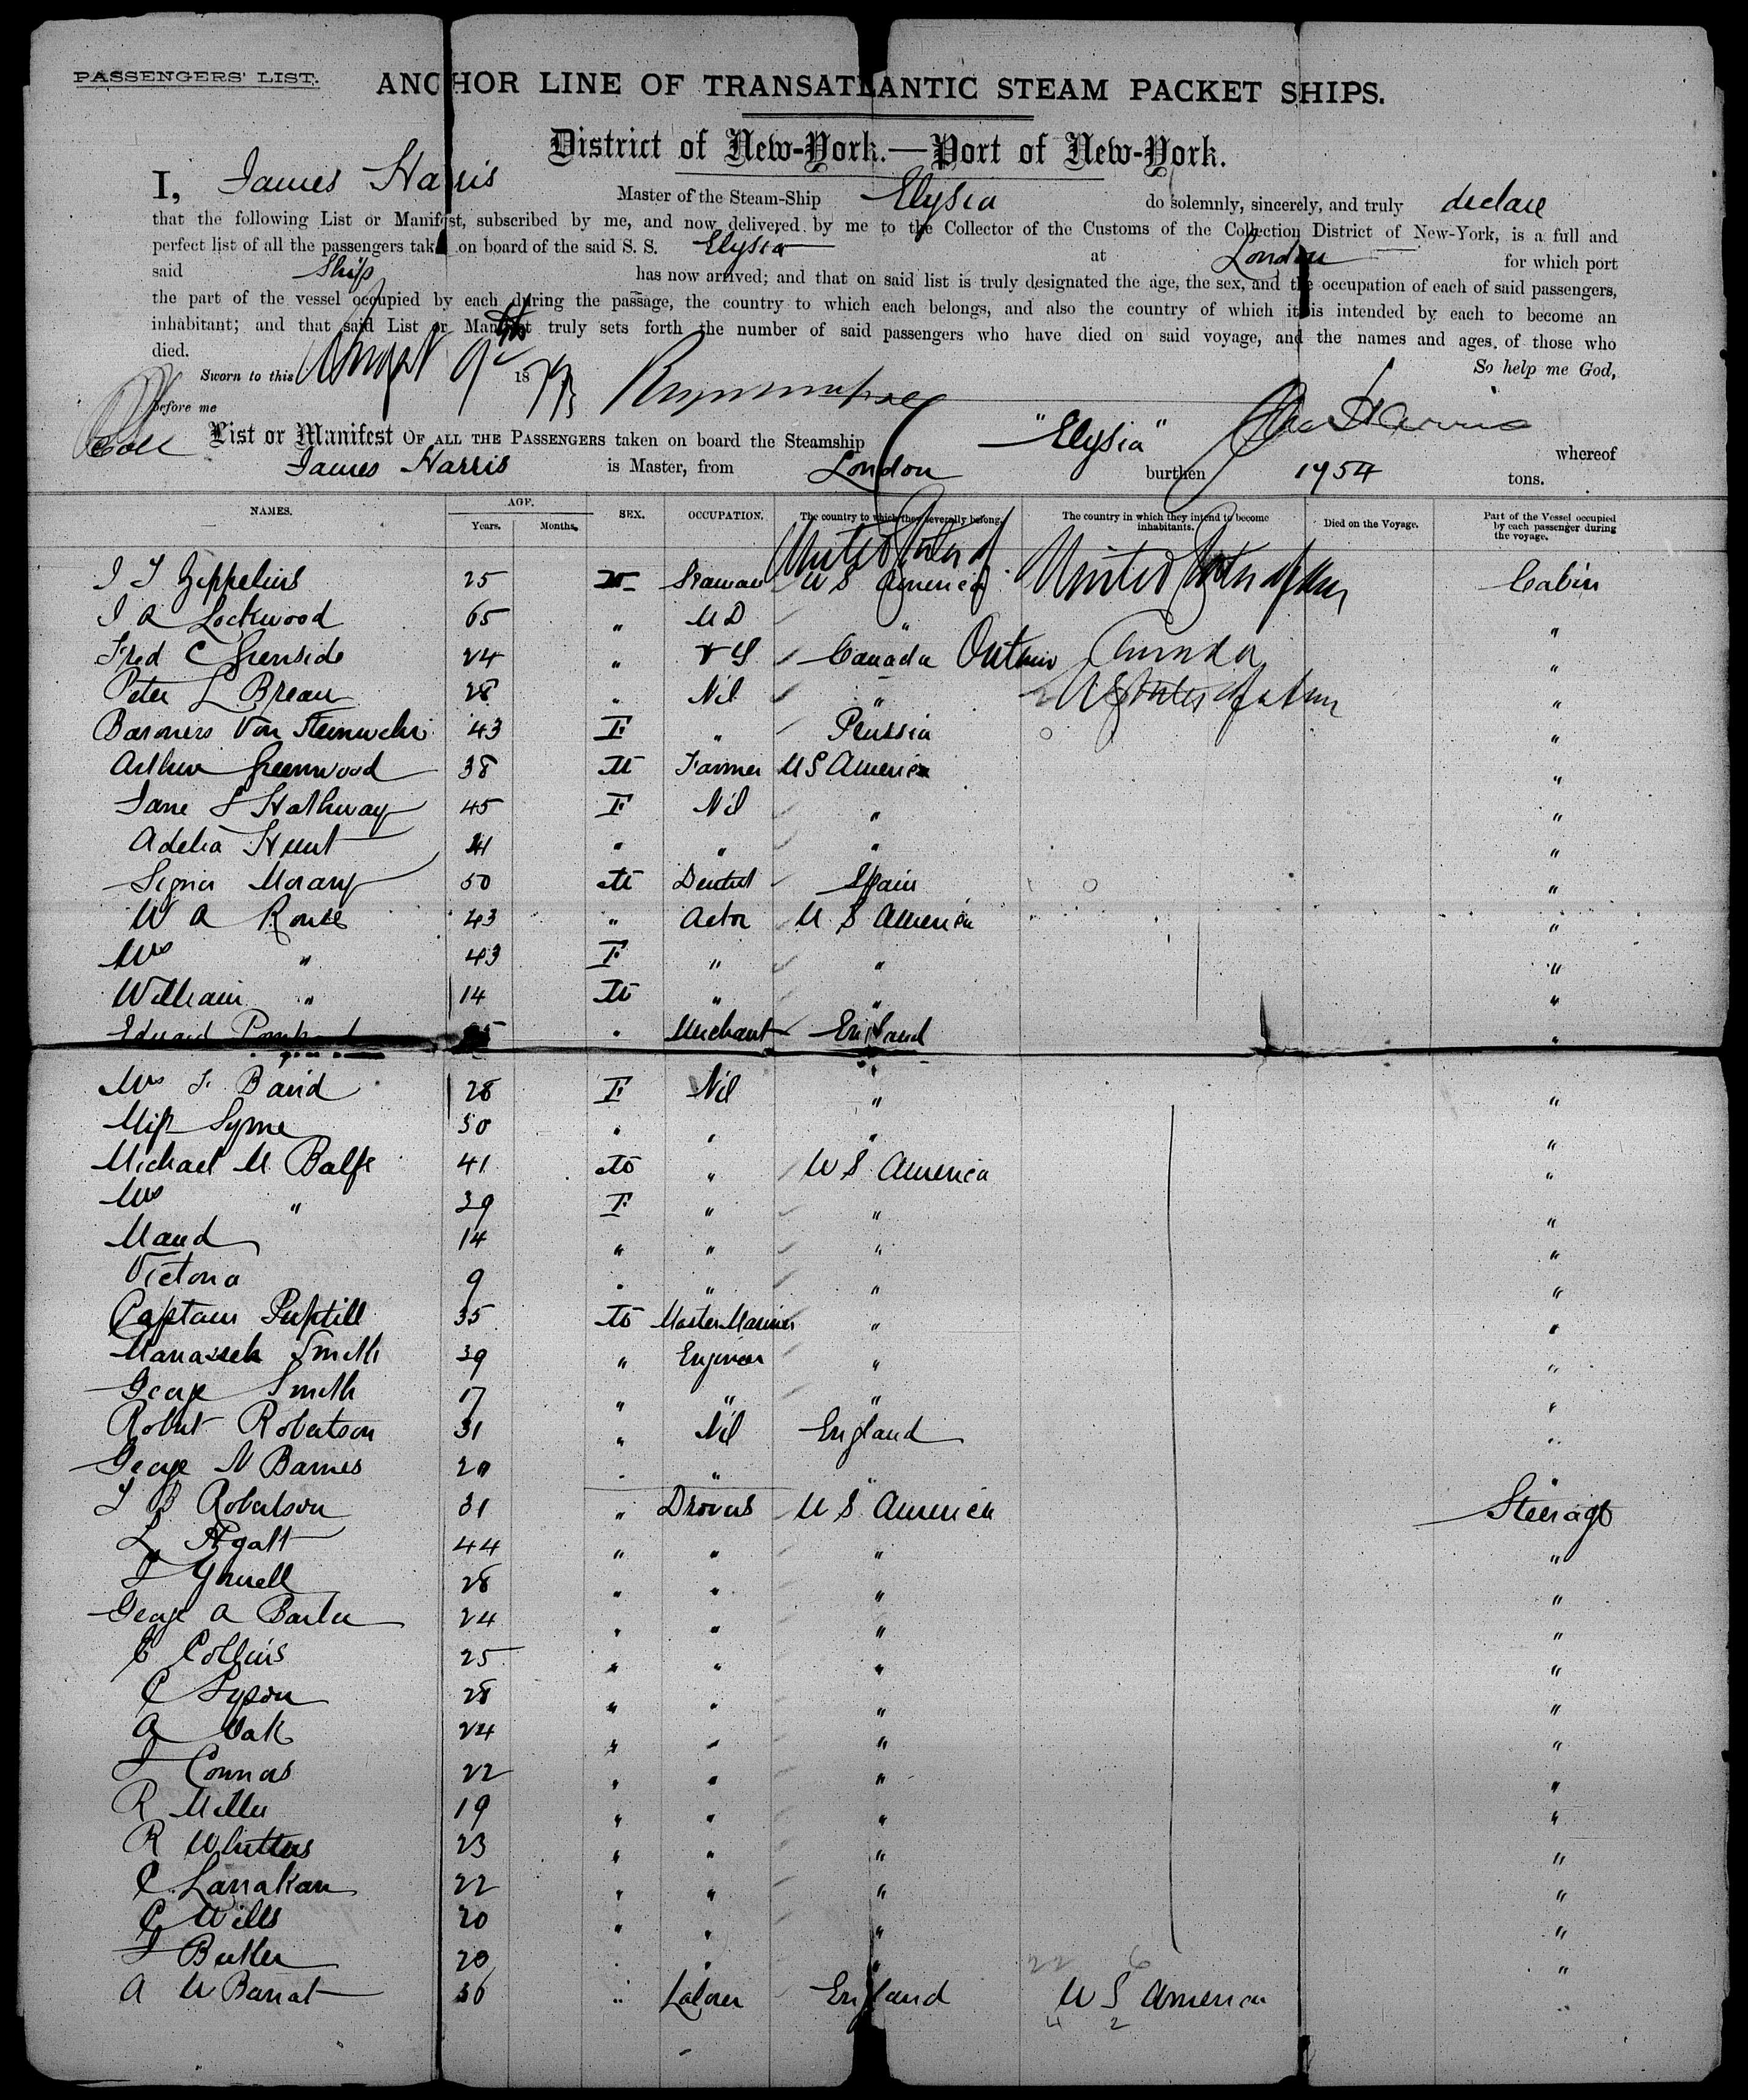 PASSENGERS' LIST.
ANCHOR LINE OF TRANSATLANTIC STEAM PACKET SHIPS.
District of New-York.—Port of New-York.
I, James Harris Master of the Steam-Ship Elysia do solemnly, sincerely, and truly declare
that the following List or Manifest, subscribed by me, and now delivered by me to the Collector of the Customs of the Collection District of New-York, is a full and
perfect list of all the passengers taken on board of the said S. S. Elysia at London for which port
said Ship has now arrived; and that on said list is truly designated the age, the sex, and the occupation of each of said passengers,
the part of the vessel occupied by each during the passage, the country to which each belongs, and also the country of which it is intended by each to become an
inhabitant; and that said List or Manifest truly sets forth the number of said passengers who have died on said voyage, and the names and ages of those who
died. So help me God,
Sworn to this August 9th 18
before me
List or Manifest OF ALL THE PASSENGERS taken on board the Steamship "Elysia" whereof
James Harris is Master, from London burthen 1754 tons.
NAMES. AGE. Years. Months. SEX. OCCUPATION. The country to which they severally belong. The country in which they intend to become inhabitants. Died on the Voyage. Part of the Vessel occupied by each passenger during the voyage.
United States
J T Zeppelius 25 m Seaman U S America United States of Am Cabin
J A Lockwood 65 " M D " "
Fred C Grenside 24 " V S Canada Ontario Canada "
Peter L Breau 28 " Nil " U States of Am "
Baroness Von Steinwehr 43 F " Prussia "
Arthur Greenwood 38 M Farmer U S America "
Jane S Hathway 45 F Nil " "
Adelia Hunt 21 " " " "
Signor Morany 50 M Dentist Spain "
W A Rouse 43 " Actor U S America "
Mrs " 43 F " " "
William " 14 M " " "
Edward " Merchant England "
Mrs J. Baird 28 F Nil " "
Miss Syme 30 " " " "
Michael M Balfe 41 M " U S America "
Mrs " 39 F " " "
Maud 14 " " " "
Victoria 9 " " " "
Captain 35 M Master Mariner " "
Manasseh Smith 39 " Engineer " "
George Smith 17 " " " "
Robert Robertson 31 " Nil England "
George N Barnes 20 " " " "
J B Robertson 31 " Drovers U S America Steerage
L Pgatt 44 " " " "
J Yowell 28 " " " "
George A Barber 24 " " " "
C Collins 25 " " " "
C Syson 28 " " " "
A Oak 24 " " " "
J Connors 22 " " " "
R Miller 19 " " " "
R Whitters 23 " " " "
C Lanakan 22 " " " "
C Wills 20 " " " "
J Butler 20 " " " "
22 6
A W Barrat 36 " Labourer England U S America "
4 2